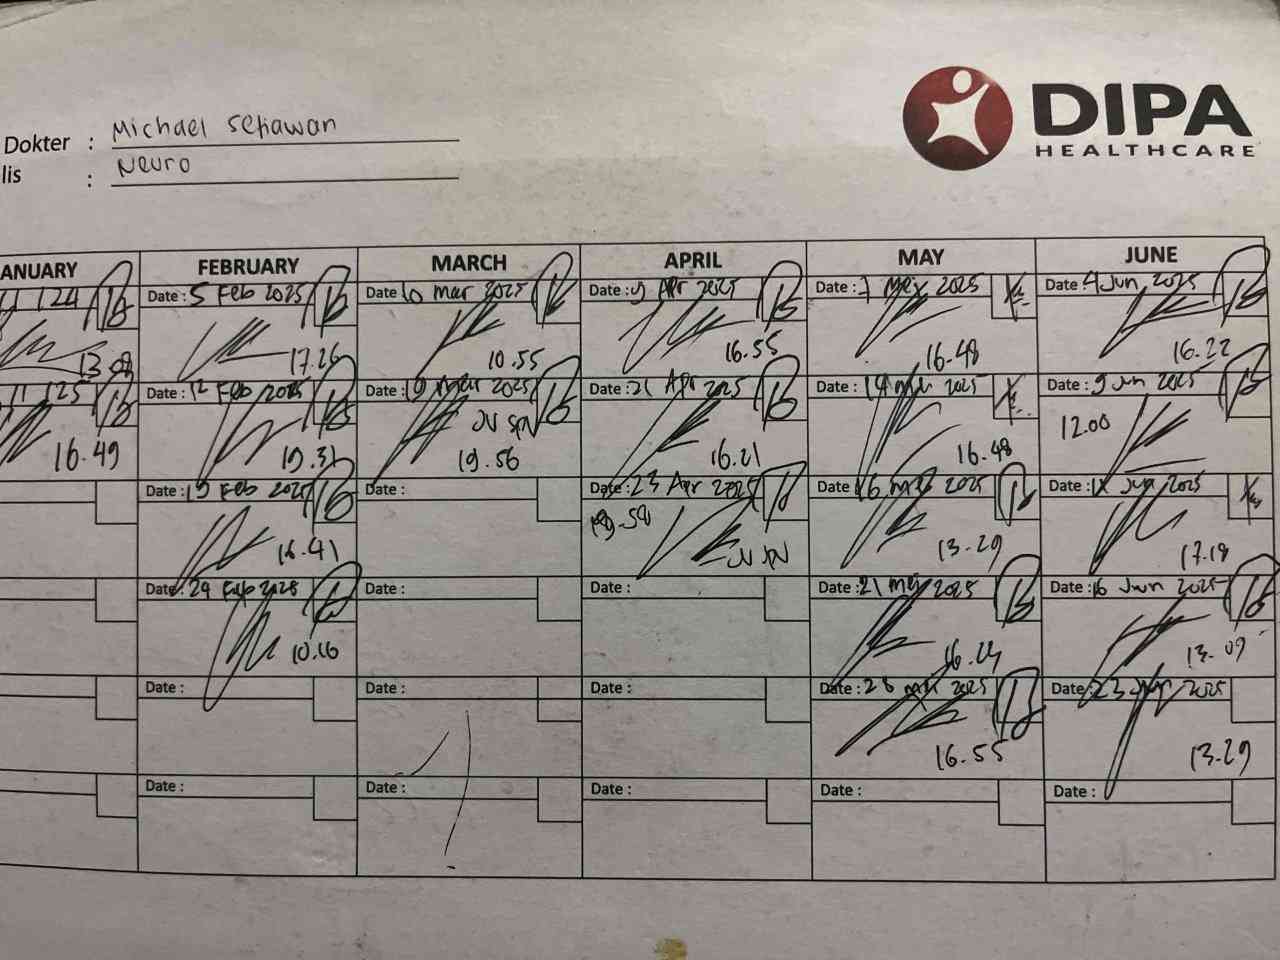 DIPA
HEALTHCARE
Dokter : Michael Setiawan
lis : Neuro
ANUARY FEBRUARY MARCH APRIL MAY JUNE
Date : 5 Feb 2025 Date 10 Mar 2025 Date : 9 Apr 2025 Date : 7 Mei 2025 Date : 4 Jun 2025
13.08 17.26 10.55 16.55 16.48 16.22
125 Date : 12 Feb 2025 Date 19 Mar 2025 Date : 21 Apr 2025 Date : 14 Mei 2025 Date : 9 Jun 2025
16.49 19.31 19.56 16.21 16.48 12.00
Date : 19 Feb 2025 Date : Date : 23 Apr 2025 Date 16 Mei 2025 Date : Jun 2025
16.41 13.29 17.18
Date : Feb 2025 Date : Date : Date : 21 Mei 2025 Date : 16 Jun 2025
10.16 13.09
Date : Date : Date : Date : 28 Mei 2025 Date : 23 Jun 2025
16.55 13.29
Date : Date : Date : Date : Date :